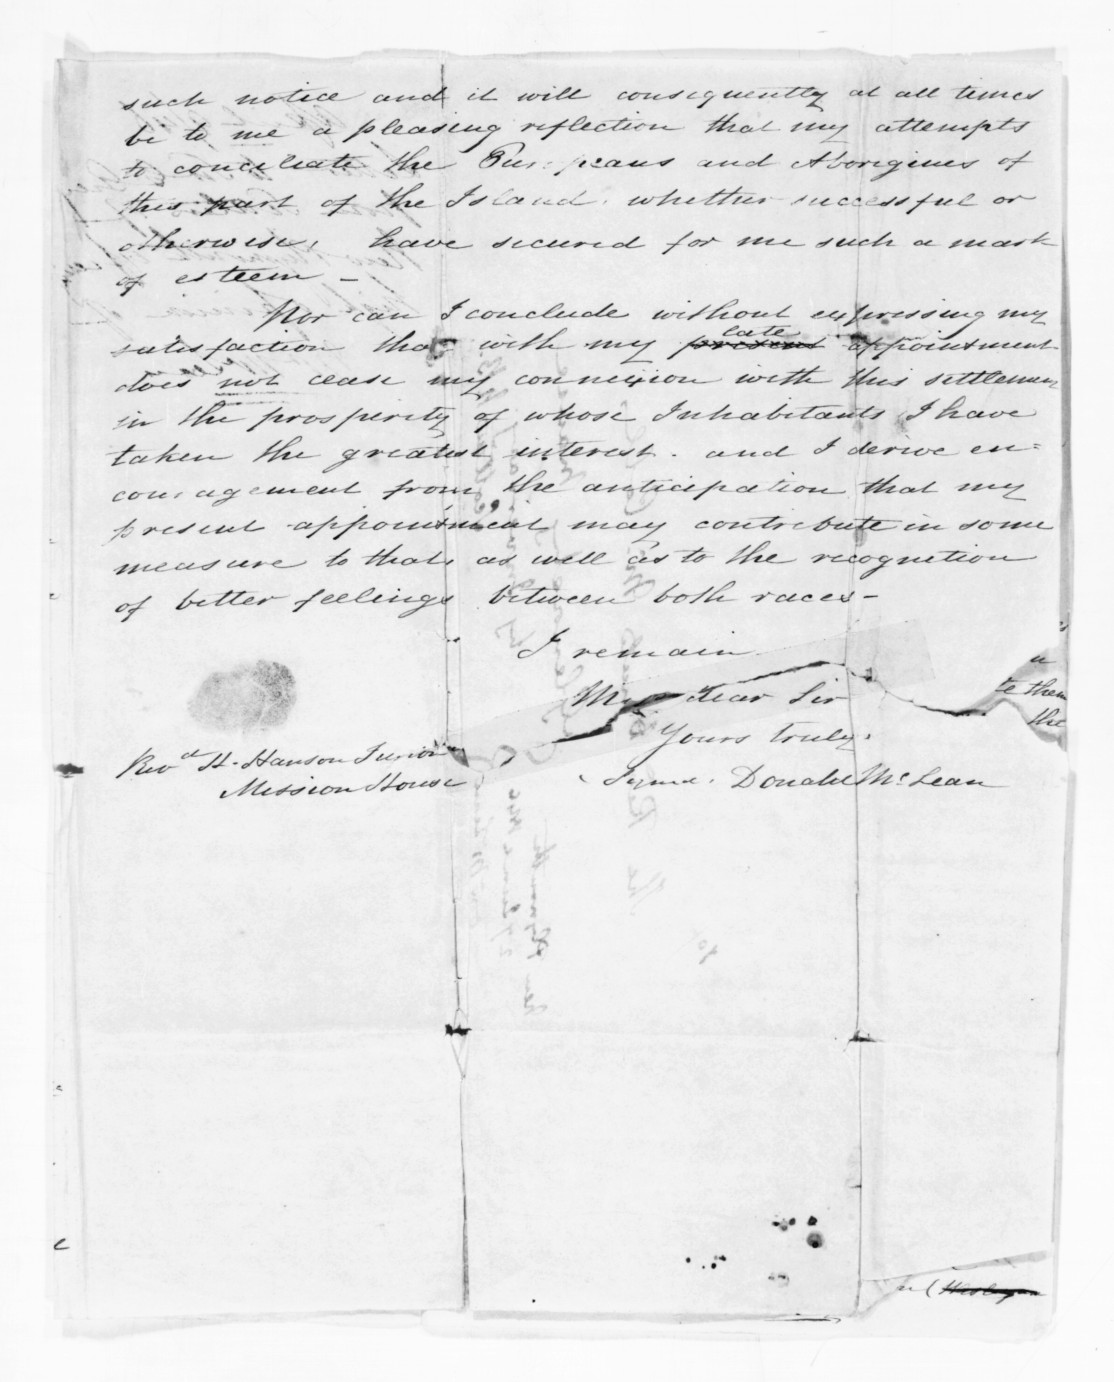 such notice and it will consequently at all times
be to me a pleasing reflection that my attempts
to conciliate the Europeans and Aborigines of
this part of the Island, whether successful or
otherwise, have secured for me such a mark
of esteem –
Nor can I conclude without expressing my
satisfaction that with my present late appointment
does not cease my connexion with this settlement
in the prosperity of whose Inhabitants I have
taken the greatest interest. and I derive en=
couragement from the anticipation that my
present appointment may contribute in some
measure to that, as well as to the recognition
of better feelings between both races –
I remain
My dear Sir
Yours truly,
(Signed, Donald McLean
Revd H. Hanson Turton
Mission House
te them
the
(Wesleyan